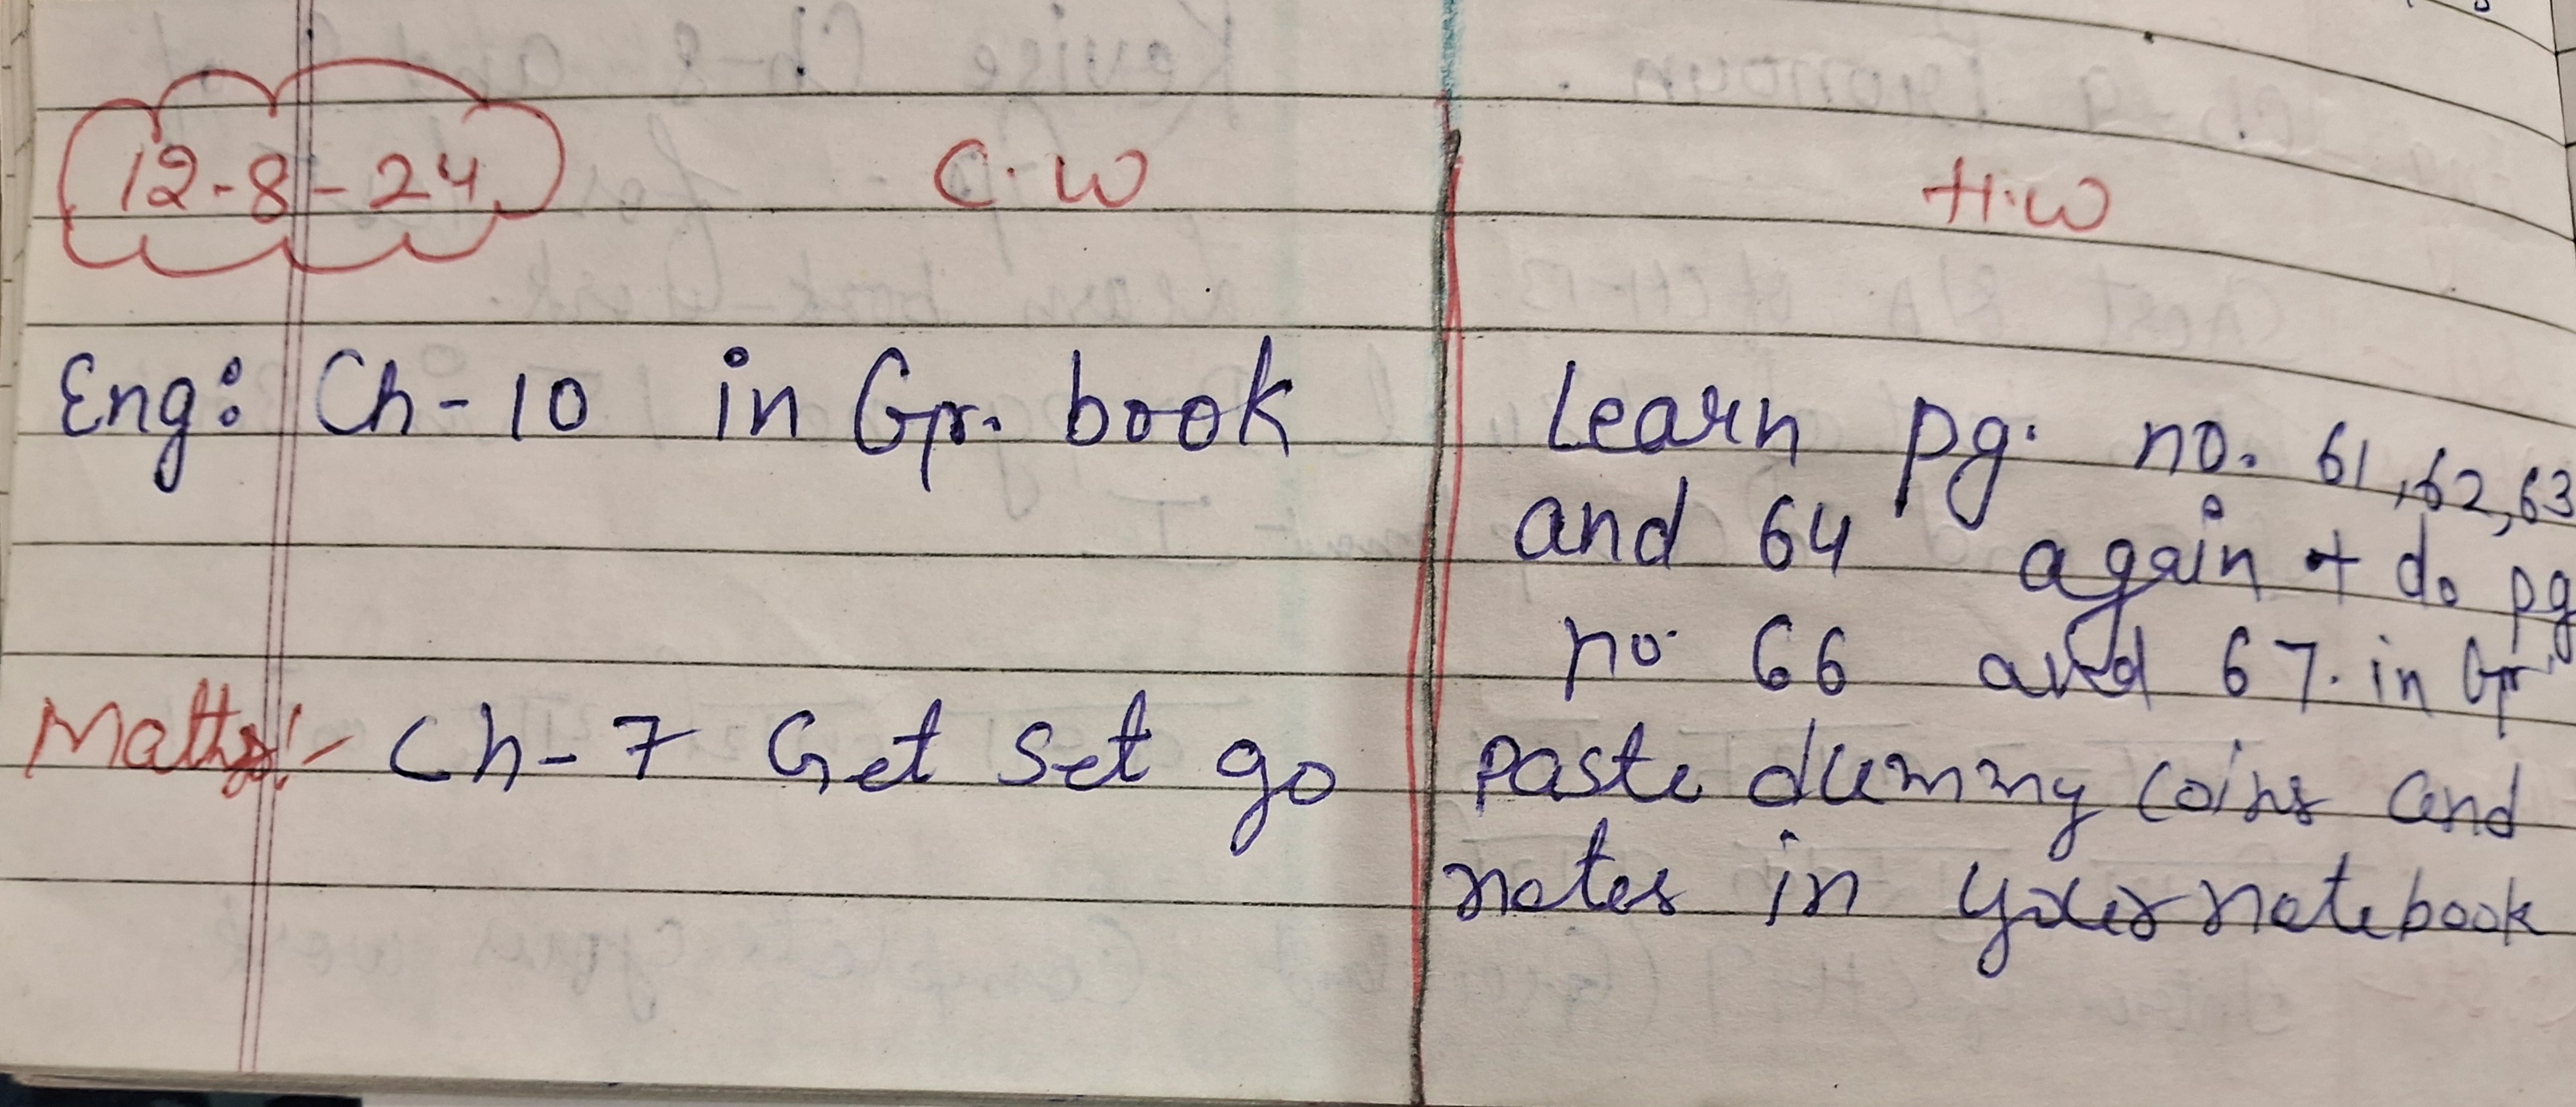 12-8-24 C.W H.W
Eng: Ch-10 in Gr. book Learn pg. no. 61,62,63
and 64 again + do pg
no. 66 and 67. in Gr
Maths:- Ch-7 Get set go paste dummy coins and
notes in your notebook